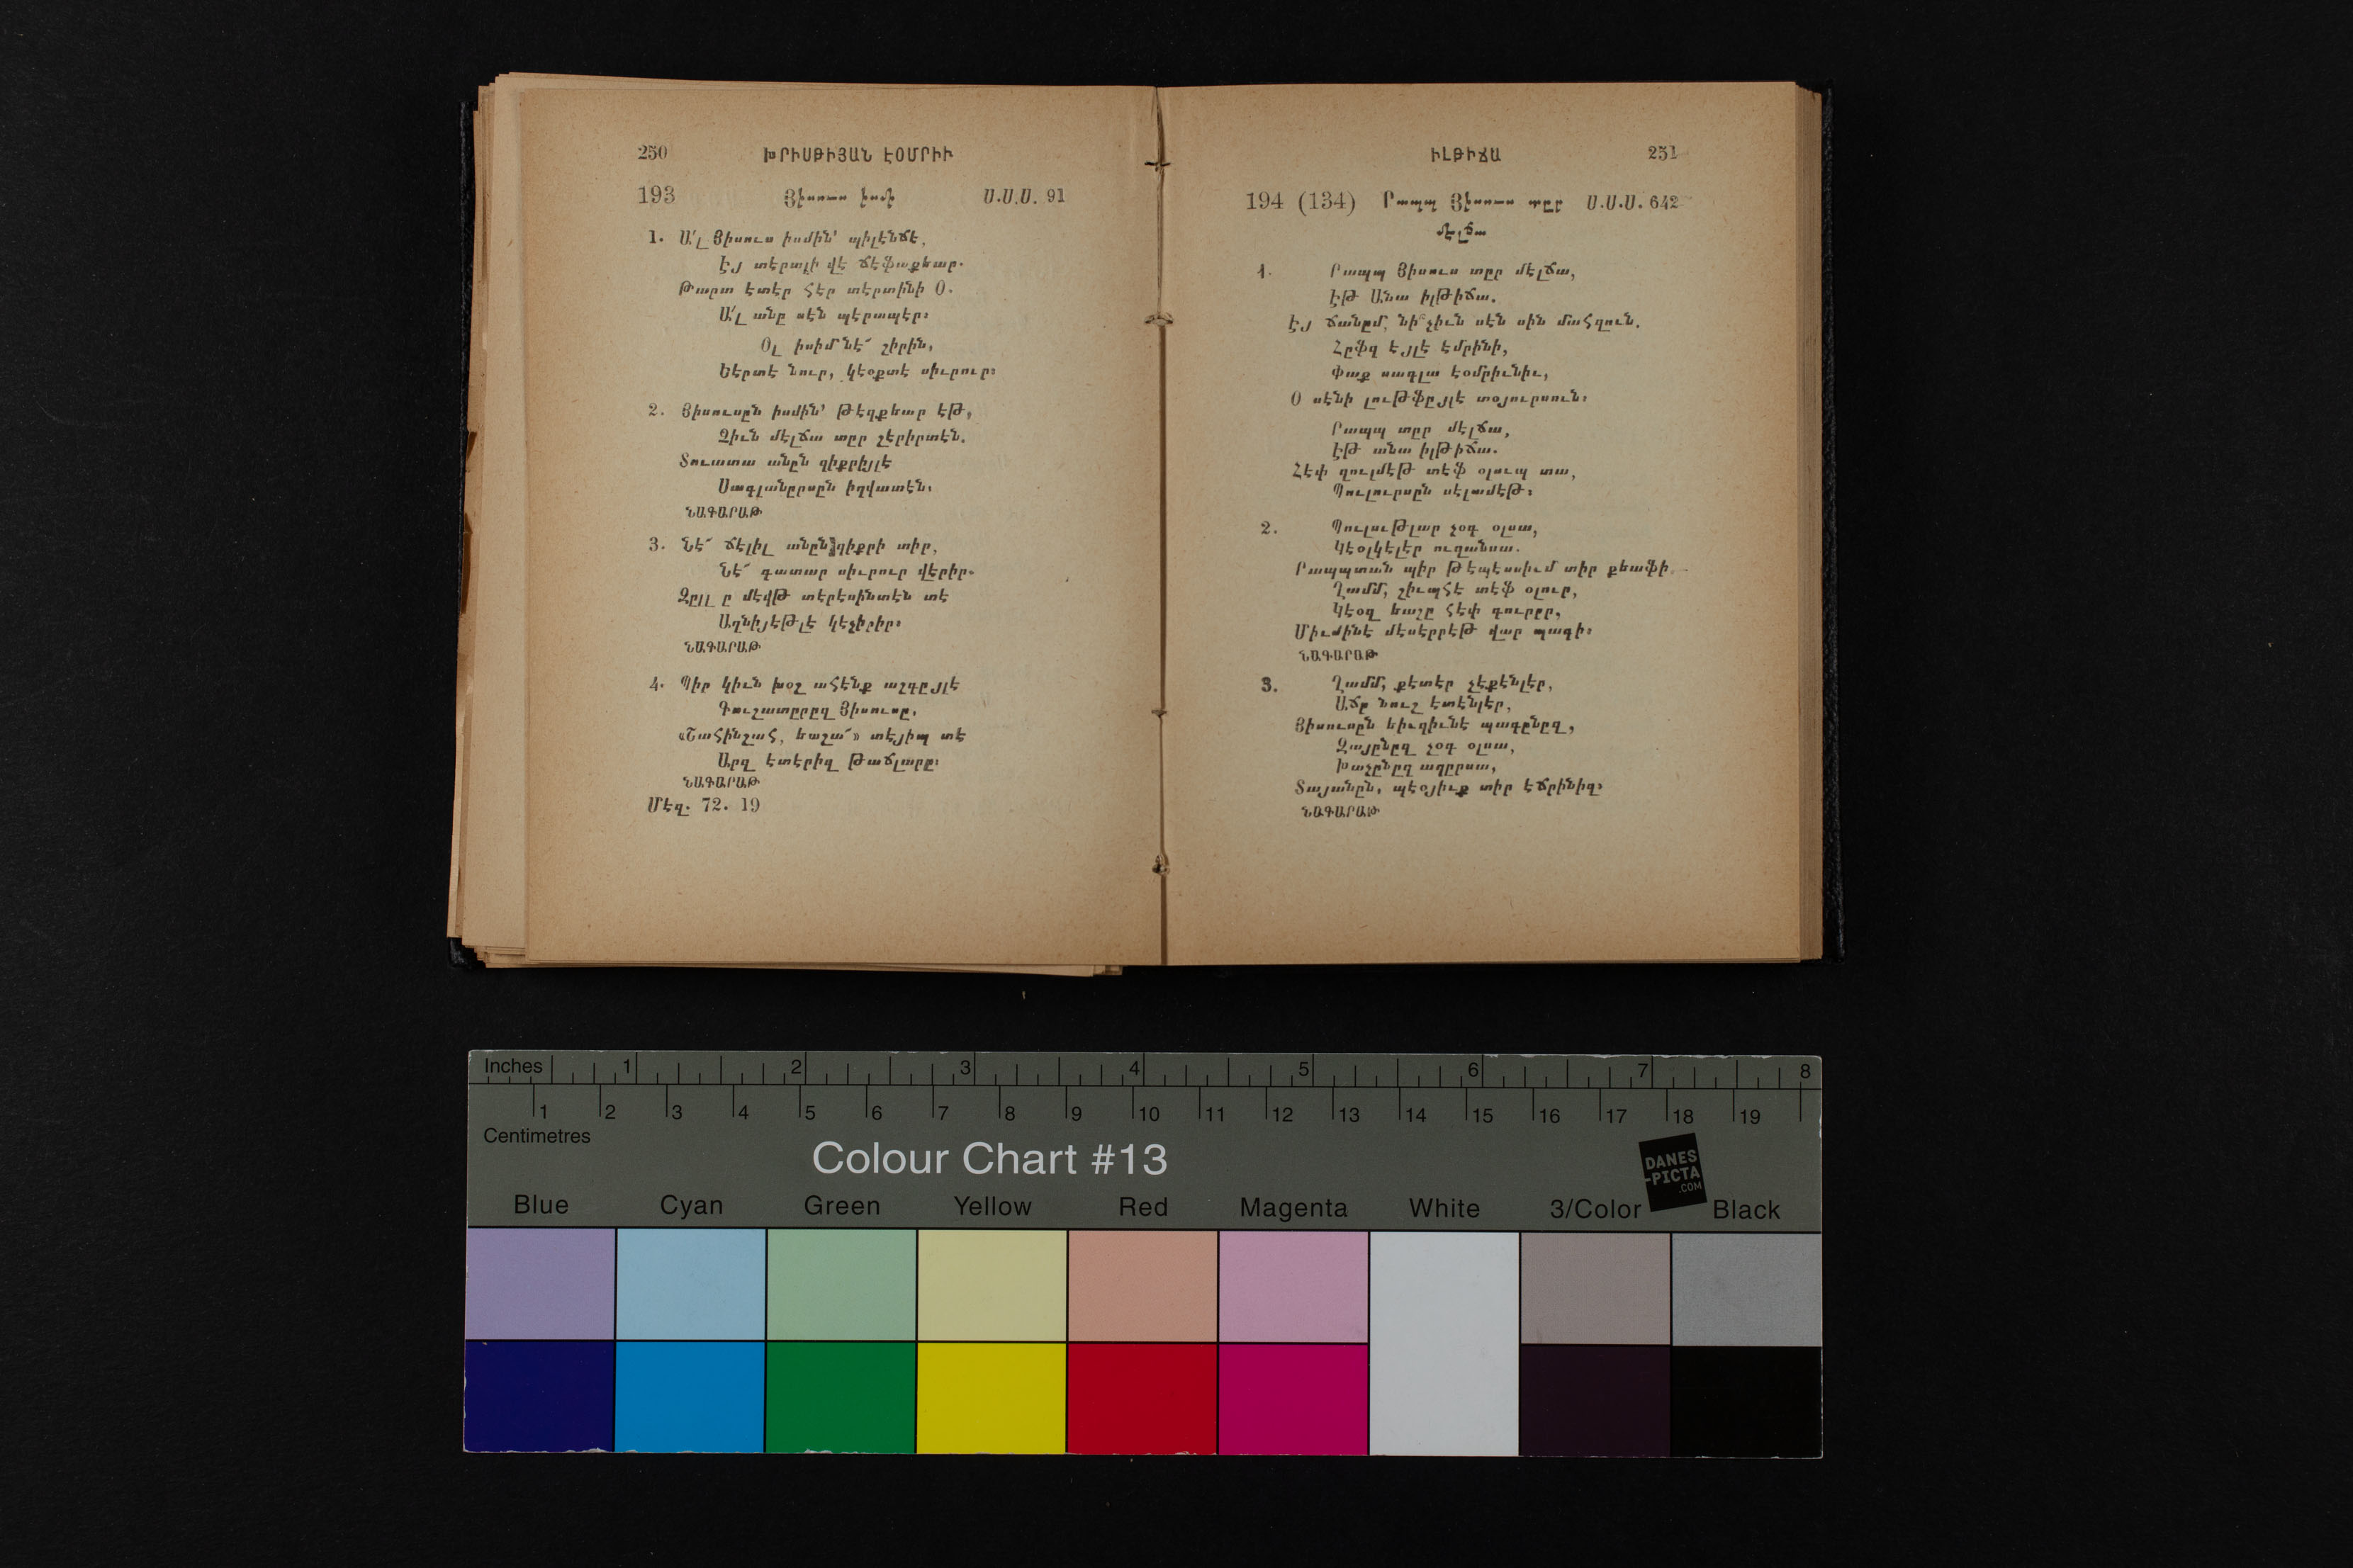 250 ԽՐԻՍԹԻՅԱՆ ԷՕՄՐԻՒ
193 Յիսուս իսմի Ս.Ս.Ս. 91
1. Ա՛լ Յիսուս իսմին՝ պիլէնճէ,
Էյ տէրտլի վէ ճէֆաքեար.
Թարտ էտէր հէր տէրտինի Օ.
Ա՛լ անը սէն պէրապէր։
Օլ իսիմ նէ՜ շիրին,
Եէրտէ նուր, կէօքտէ սիւրուր։
2. Յիսուսըն իսմին՝ թէզքեար էթ,
Չիւն մէլճա տըր շէրիրտէն.
Տուատա անըն զիքրիյլէ
Սագլանըրսըն իղվատէն։
ՆԱԳԱՐԱԹ
3. Նէ՜ ճէլիլ անըն զիքրի տիր,
Նէ՜ գատար սիւրուր վէրիր.
Զըլլ ը մէվթ տէրէսինտէն տէ
Ամնիյէթլէ կէչիրիր։
ՆԱԳԱՐԱԹ
4. Պիր կիւն խօշ ահէնք աշգըյլէ
Գուշատըրըզ Յիսուսը,
«Շահինշահ, եաշա՜» տէյիպ տէ
Արզ էտէրիզ թաճլարը։
ՆԱԳԱՐԱԹ
Մէզ. 72. 19
ԻԼԹԻՃԱ 251
194 (134) Րապպ Յիսուս տըր Ս.Ս.Ս. 642
մէլճա
1. Րապպ Յիսուս տըր մէլճա,
Էթ Անա իլթիճա.
Էյ ճանըմ, նի՞չիւն սէն սին մահզուն.
Հըֆզ էյլէ էմրինի,
Փաք սագլա էօմրիւնիւ,
Օ սէնի լութֆըյլէ տօյուրսուն։
Րապպ տըր մէլճա,
Էթ անա իլթիճա.
Հէփ զուլմէթ տէֆ օլուպ տա,
Պուլուրսըն սէլամէթ։
2. Պուլութլար չօգ օլսա,
Կէօլկէլէր ուզանսա.
Րապպտան պիր թէպէսսիւմ տիր քեաֆի.
Ղամմ, շիւպհէ տէֆ օլուր,
Կէօզ եաշը հէփ գուրըր,
Միւմինէ մէսէրրէթ վար պագի։
ՆԱԳԱՐԱԹ
3. Ղամմ, քէտէր չէքէնլէր,
Աճը նուշ էտէնլէր,
Յիսուսըն եիւզիւնէ պագընըզ,
Զայընըզ չօգ օլսա,
Խաչընըզ աղըրսա,
Տայանըն, պէօյիւք տիր էճրինիզ։
ՆԱԳԱՐԱԹ
Inches 1 2 3 4 5 6 7 8
1 2 3 4 5 6 7 8 9 10 11 12 13 14 15 16 17 18 19
Centimetres
Colour Chart #13
DANES
-PICTA
.COM
Blue Cyan Green Yellow Red Magenta White 3/Color Black